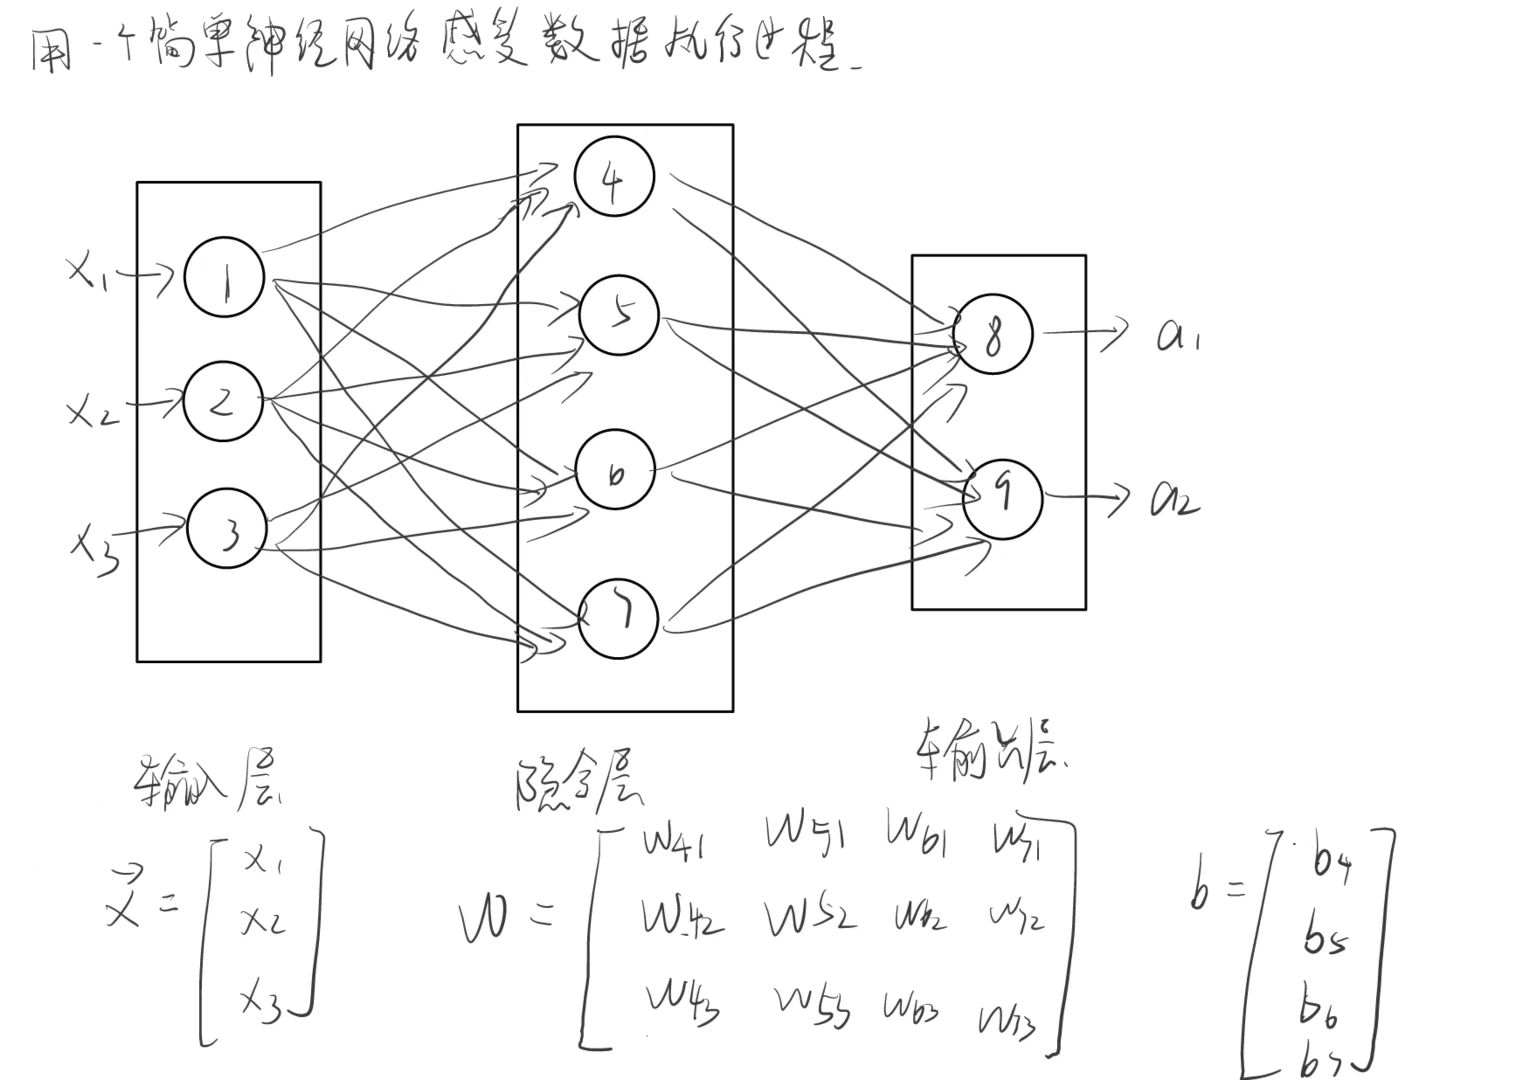 用一个简单神经网络感受数据执行过程
x1 1 4
x2 2 5 8 a1
x3 3 6 9 a2
7
输入层 隐含层 输出层
x = [ x1 x2 x3 ]
W = [ W41 W51 W61 W71
W42 W52 W62 W72
W43 W53 W63 W73 ]
b = [ b4 b5 b6 b7 ]